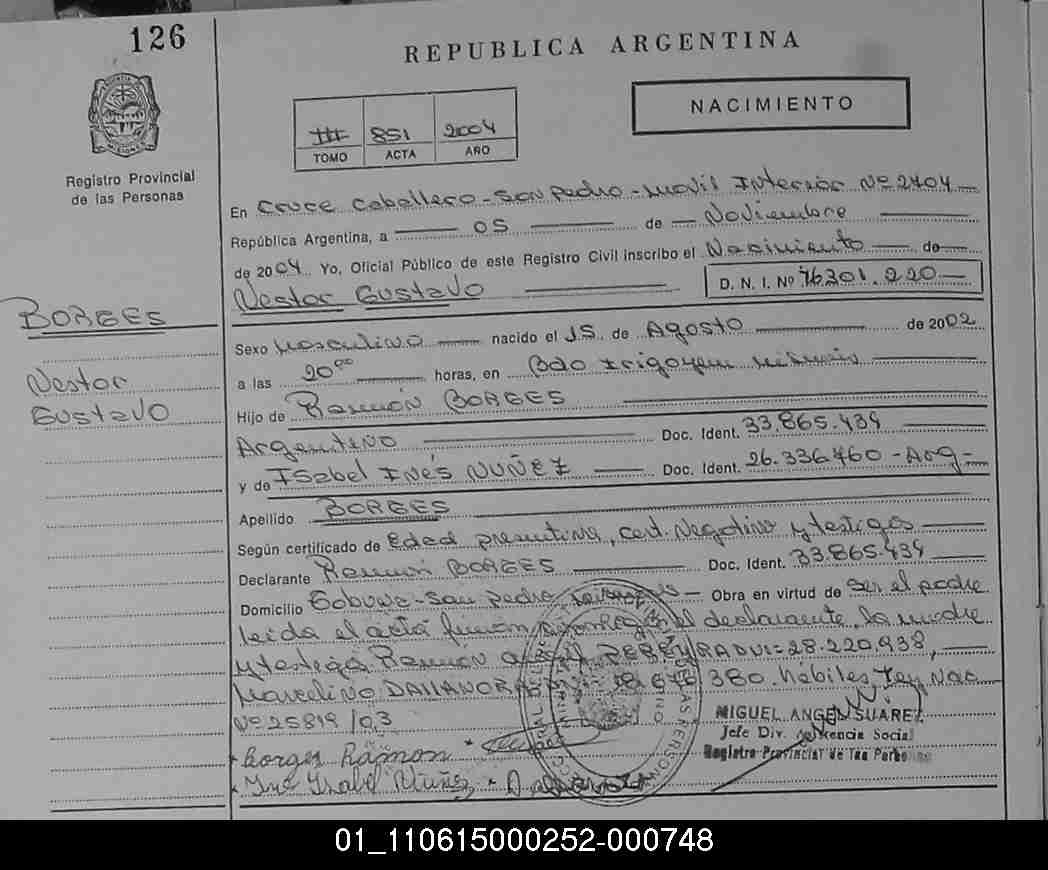 126
REPUBLICA ARGENTINA
NACIMIENTO
III 851 2004
TOMO ACTA AÑO
Registro Provincial
de las Personas
En Cruce Caballero - San Pedro - Movil Interior Nº 2404
República Argentina, a 05 de Noviembre
de 2004 Yo, Oficial Público de este Registro Civil inscribo el Nacimiento de
Nestor Gustavo D. N. I. Nº 46301.220
BORGES
Nestor
Gustavo
Sexo Masculino nacido el 15 de Agosto de 2002
a las 20 00 horas, en Bdo Irigoyen Misiones
Hijo de Ramón BORGES
Argentino Doc. Ident. 33.865.439
y de Isabel Inés NUÑEZ Doc. Ident. 26.336460 - Arg -
Apellido BORGES
Según certificado de Edad presuntiva, cert. Negativo y testigos
Declarante Ramón BORGES Doc. Ident. 33.865.439
Domicilio San Pedro Obra en virtud de Ser el padre
leida el acta declarante, la madre
y testigos Ramón DNI = 28.220.938,
Marcelino 380 hábiles Ley Nac
Nº 25819/03
MIGUEL ANGEL SUAREZ
Jefe Div. Asistencia Social
Registro Provincial de las Personas
Borges Ramon
Ine Isabel Nuñez
01_110615000252-000748